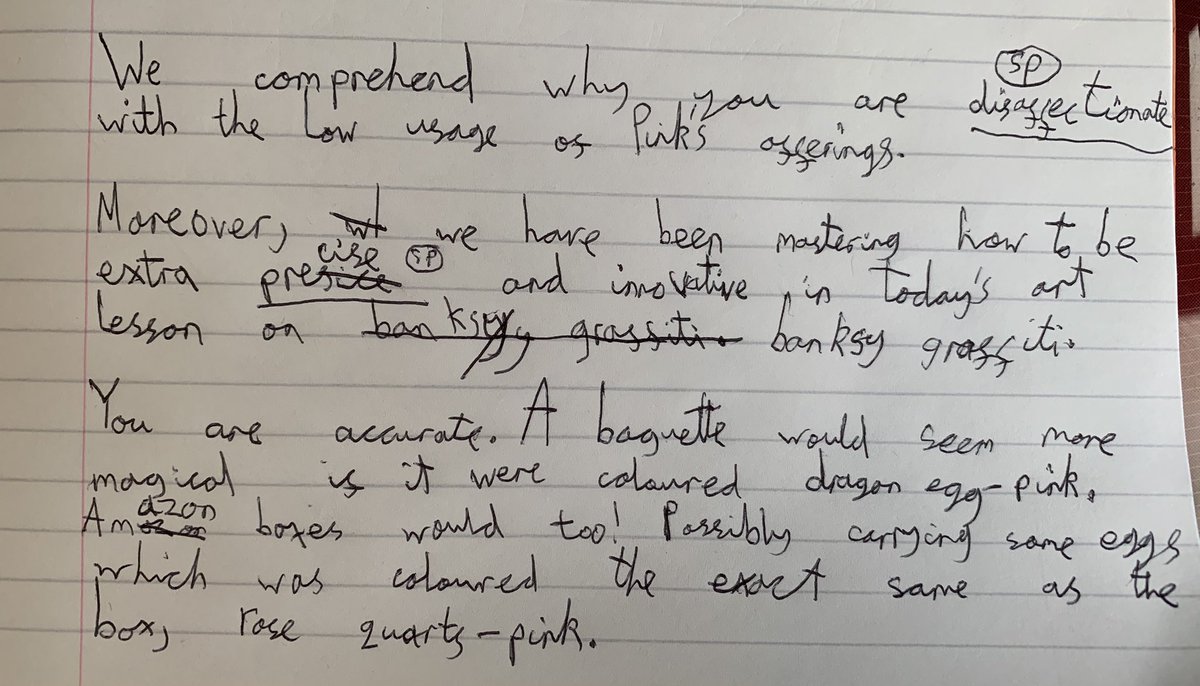 SP
We comprehend why you are disaffectionate
with the low usage of Pink's offerings.
Moreover, we have been mastering how to be
cise SP
extra presice and innovative in today's art
lesson on banksy graffiti. banksy graffiti.
You are accurate. A baguette would seem more
magical if it were coloured dragon egg-pink.
azon
Am boxes would too! Possibly carrying some eggs
which was coloured the exact same as the
box, rose quarts-pink.